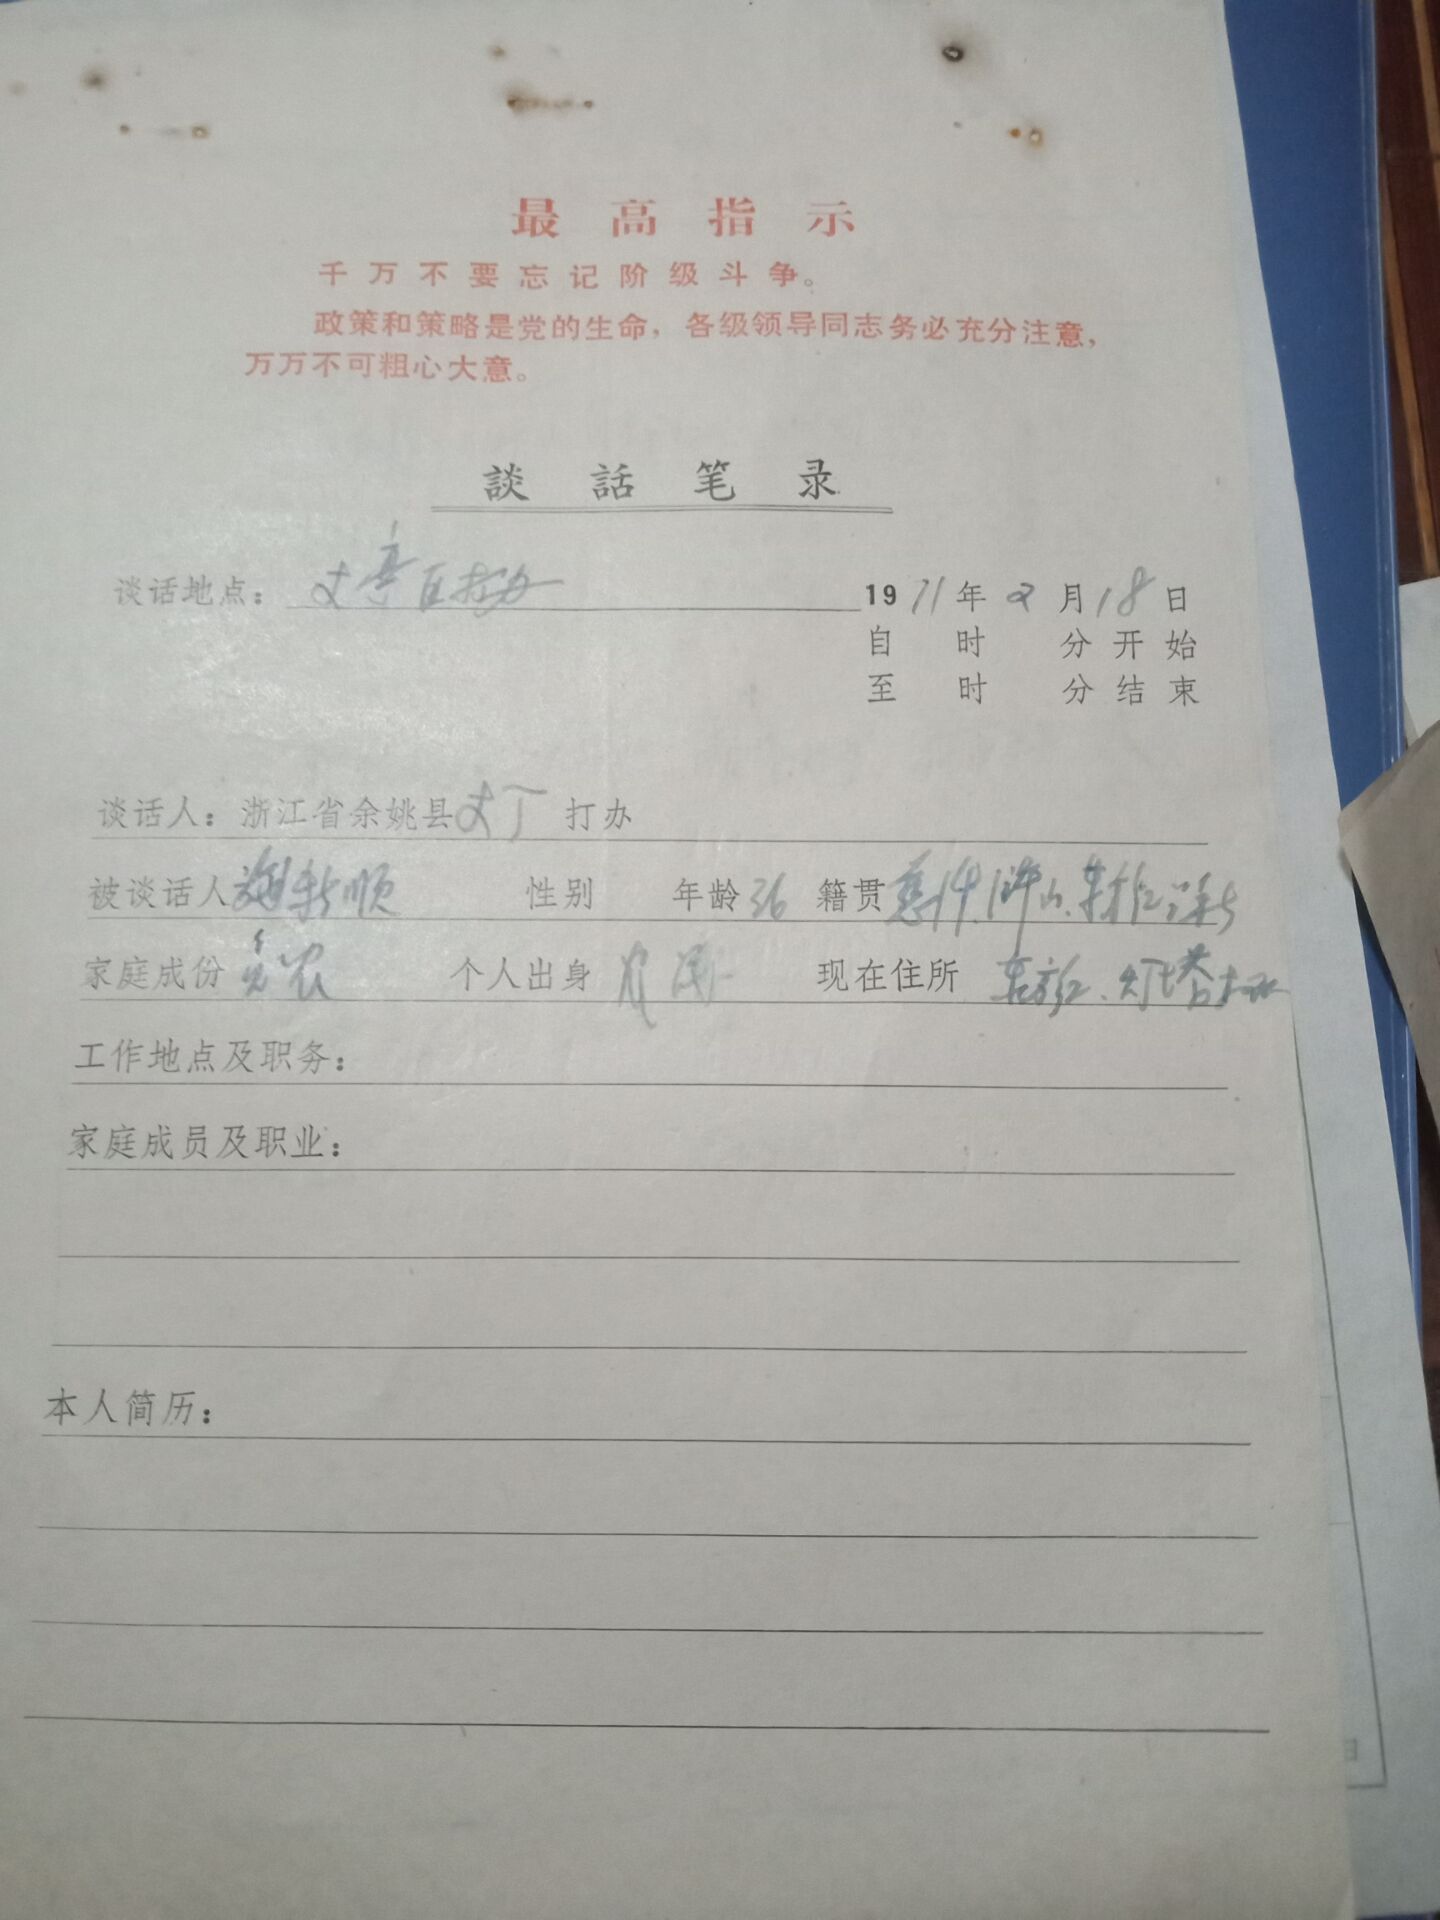 最高指示
千万不要忘记阶级斗争。
政策和策略是党的生命，各级领导同志务必充分注意，
万万不可粗心大意。
談話笔录
谈话地点：丈亭区打办 1971年2月18日
自 时 分开始
至 时 分结束
谈话人：浙江省余姚县丈丁打办
被谈话人 施新顺 性别 年龄36 籍贯 慈 浒山
家庭成份 贫农 个人出身 农 现在住所 东方红、灯塔大队
工作地点及职务：
家庭成员及职业：
本人简历：